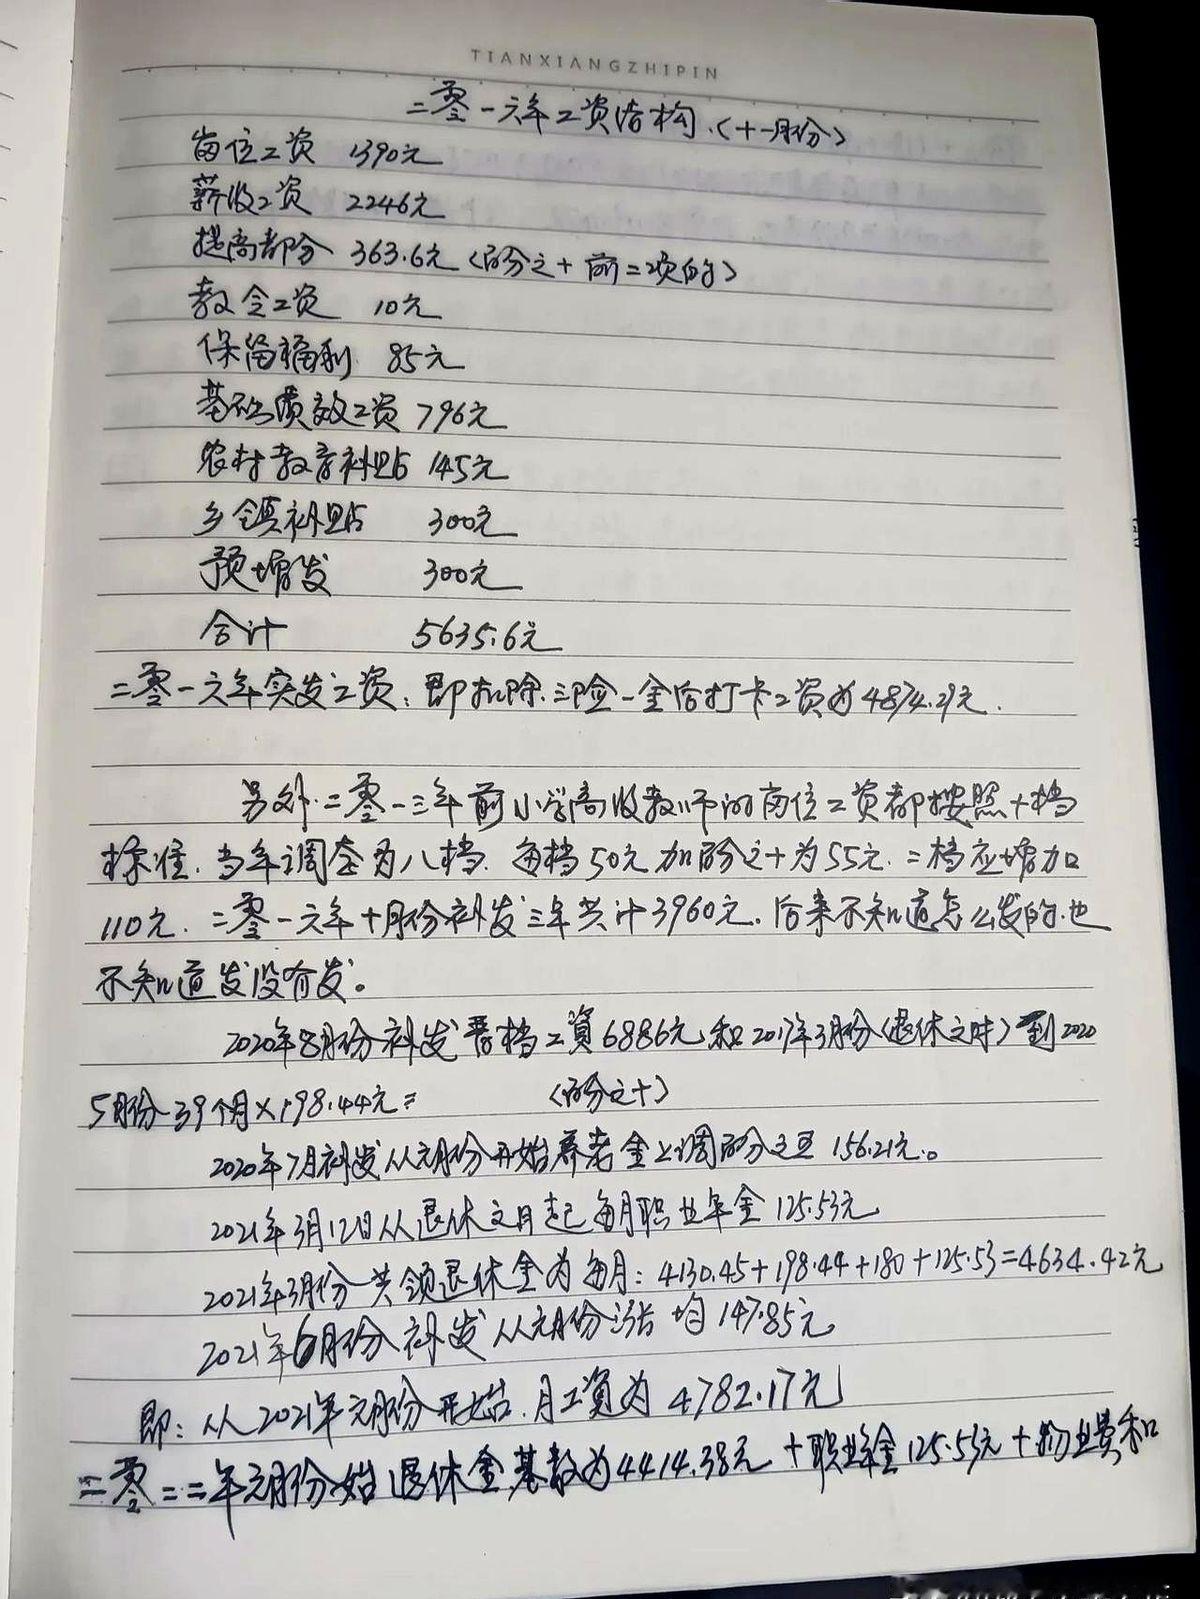 TIANXIANGZHIPIN
二零一六年工资结构.(十一月份)
岗位工资 1390元
薪级工资 2246元
提高部分 363.6元(百分之十 前二项的)
教令工资 10元
保留福利 85元
基础绩效工资 796元
农村教育补贴 145元
乡镇补贴 300元
预增发 300元
合计 5635.6元
二零一六年实发工资:即扣除三险一金后打卡工资为4874.21元.
另外.二零一三年前小学高级教师的岗位工资都按照十档
标准.当年调套为八档.每档50元加百分之十为55元.二档应增加
110元.二零一六年十月份补发三年共计3960元.后来不知道怎么发的也
不知道发没有发。
2020年8月份补发晋档工資6886元和2017年3月份(退休之时)到2020
5月份39个月×198.44元=
(百分之十)
2020年7月补发从元月份开始养老金上调百分之五 156.21元。
2021年3月12日从退休之日起每月职业年金125.53元
2021年3月份共领退休金为每月:4130.45+198.44+180+125.53=4634.42元
2021年6月份补发从元月份涨 均147.85元
即:从2021年元月份开始.月工资为4782.17元
二零二二年元月份始退休金基数为4414.38元+职业年金125.53元+物业费和